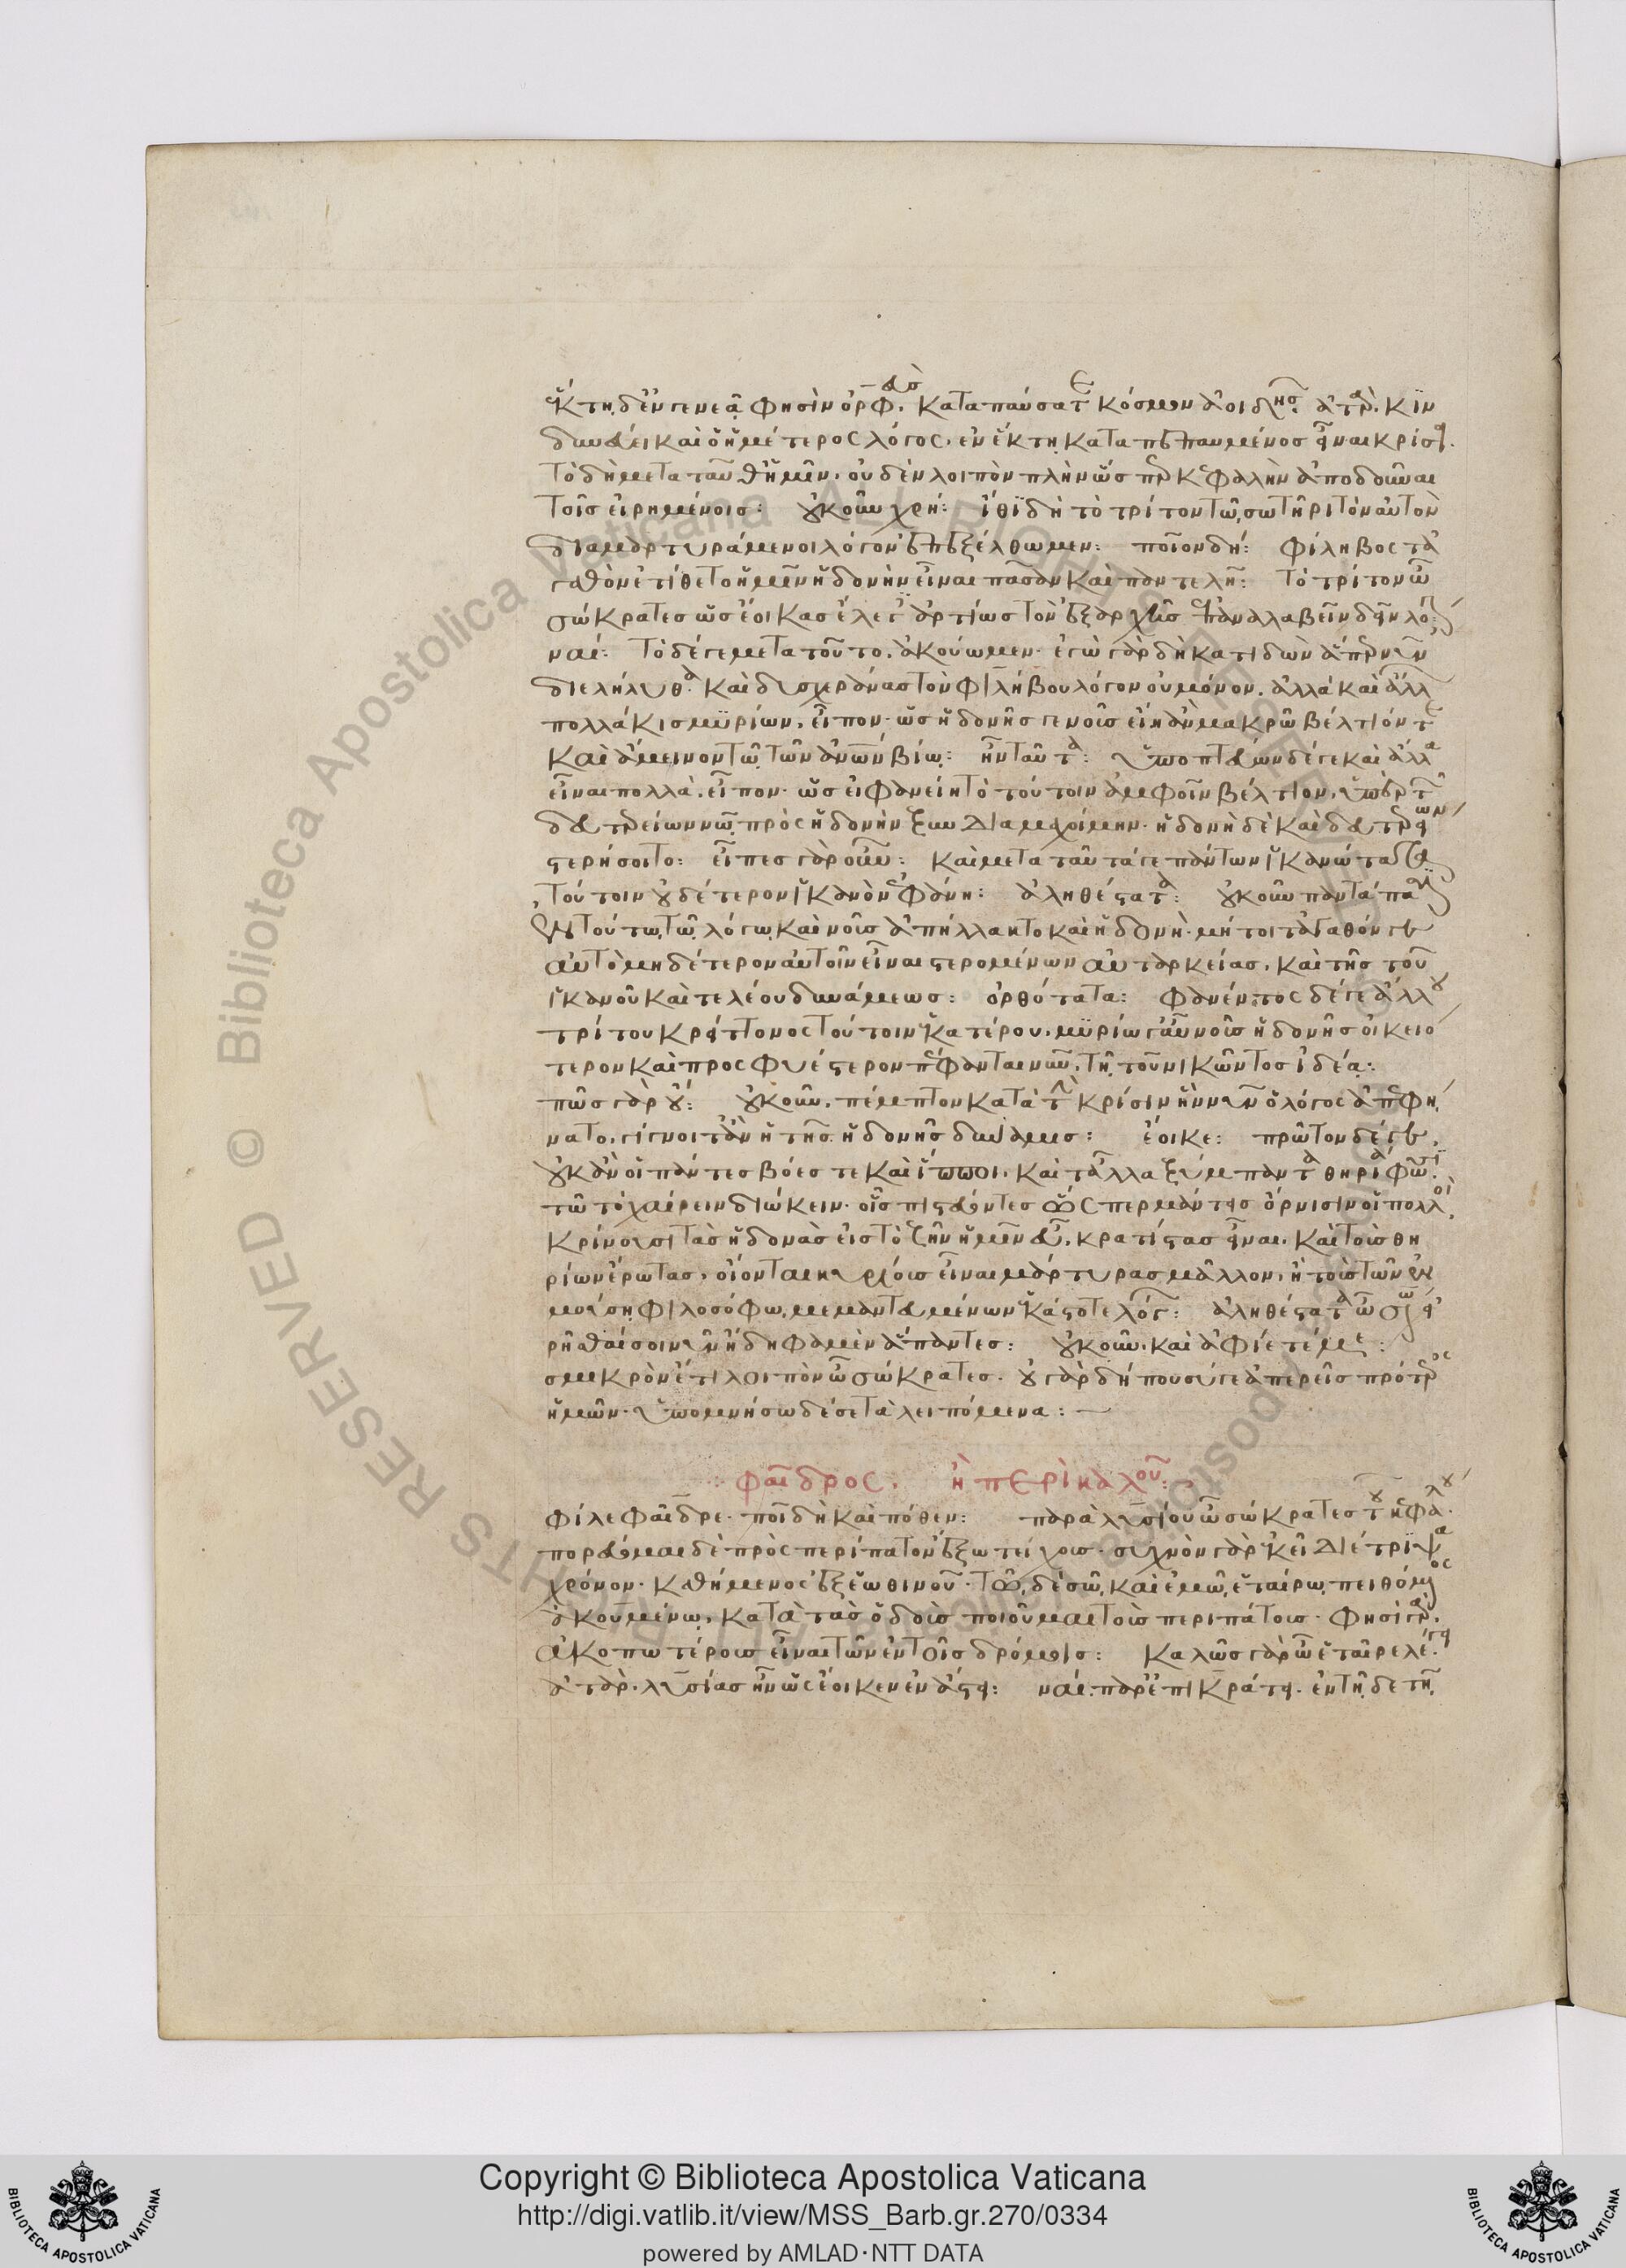 ἕκτῃ δ' ἐν γενεᾷ φησὶν ὀρφεὺς. καταπαύσατε κόσμον ἀοιδῆς. ἀτὰρ. κιν
δυνεύει καὶ ὁ ἡμέτερος λόγος. ἐν ἕκτῃ καταπεπαυμένος εἶναι κρίσει.
τὸ δὴ μετὰ ταῦθ' ἡμῖν. οὐδὲν λοιπὸν πλὴν ὥσπερ κεφαλὴν ἀποδοῦναι
τοῖς εἰρημένοις: οὐκοῦν χρή: ἴθι δὴ τὸ τρίτον τῷ σωτῆρι τὸν αὐτὸν
διαμαρτυράμενοι λόγον ἐπεξέλθωμεν: ποῖον δή: φίληβος τἀ
γαθὸν ἐτίθετο ἡμῖν ἡδονὴν εἶναι πᾶσαν καὶ παντελῆ: τὸ τρίτον ὦ
σώκρατες ὡς ἔοικας ἔλεγες ἀρτίως τὸν ἐξ ἀρχῆς ἐπαναλαβεῖν δεῖν λόγον:
ναί: τὸ δέ γε μετὰ τοῦτο. ἀκούωμεν. ἐγὼ γὰρ δὴ κατιδὼν ἅπερ νῦν
διελήλυθα καὶ δυσχεράνας τὸν φιλήβου λόγον οὐ μόνον. ἀλλὰ καὶ ἄλλων
πολλάκις μυρίων, εἶπον. ὡς ἡδονῆς γε νοῦς εἴη ἂν μακρῷ βέλτιόν τε
καὶ ἄμεινον τῷ τῶν ἀνθρώπων βίῳ: ἦν ταῦτα: ὑποπτεύων δέ γε καὶ ἄλλα
εἶναι πολλά. εἶπον. ὡς εἰ φανείη τὸ τούτοιν ἀμφοῖν βέλτιον, ὑπὲρ τῶν
δευτερείων νῷ πρὸς ἡδονὴν ξυνδιαμαχοίμην. ἡδονὴ δὲ καὶ δευτερείων
στερήσοιτο: εἶπες γὰρ οὖν: καὶ μετὰ ταῦτά γε πάντων ἱκανώτατα
τούτοιν οὐδέτερον ἱκανὸν ἐφάνη: ἀληθέστατα: οὐκοῦν παντάπασιν
ἐν τούτῳ τῷ λόγῳ καὶ νοῦς ἀπήλλακτο καὶ ἡδονὴ. μή τοι τἀγαθόν γε
αὐτὸ μηδέτερον αὐτοῖν εἶναι στερομένων αὐταρκείας. καὶ τῆς τοῦ
ἱκανοῦ καὶ τελέου δυνάμεως: ὀρθότατα: φανέντος δέ γε ἄλλου
τρίτου κρείττονος τούτοιν ἑκατέρου. μυρίῳ γ' αὖ νοῦς ἡδονῆς οἰκειό
τερον καὶ προσφυέστερον πέφανται νῦν. τῇ τοῦ νικῶντος ἰδέᾳ:
πῶς γὰρ οὔ: οὐκοῦν. πέμπτον κατὰ τὴν κρίσιν ἣν νῦν ὁ λόγος ἀπεφή
νατο. γίγνοιτ' ἂν ἡ τῆς ἡδονῆς δύναμις: ἔοικε: πρῶτον δέ γε.
οὐκ ἂν οἱ πάντες βόες τε καὶ ἵπποι. καὶ τἆλλα ξύμπαντα θηρία φῶσι
τῷ τὸ χαίρειν διώκειν. οἷς πιστεύοντες ὥσπερ μάντεις ὄρνισιν οἱ πολλοὶ
κρίνουσι τὰς ἡδονὰς εἰς τὸ ζῆν ἡμῖν εὖ, κρατίστας εἶναι. καὶ τοὺς θη
ρίων ἔρωτας. οἴονται κυρίους εἶναι μάρτυρας μᾶλλον, ἢ τοὺς τῶν ἐν
μούσῃ φιλοσόφῳ μεμαντευμένων ἑκάστοτε λόγων: ἀληθέστατα ὦ σώκρατες εἰ
ρῆσθαί σοι νῦν ἤδη φαμὲν ἅπαντες: οὐκοῦν. καὶ ἀφίετέ με:
σμικρὸν ἔτι λοιπὸν ὦ σώκρατες. οὐ γὰρ δήπου σύ γε ἀπερεῖς πρότερος
ἡμῶν. ὑπομνήσω δέ σε τὰ λειπόμενα:
φαῖδρος. ἢ περὶ καλοῦ:
φίλε φαῖδρε. ποῖ δὴ καὶ πόθεν: παρὰ λυσίου ὦ σώκρατες τοῦ κεφάλου.
πορεύομαι δὲ πρὸς περίπατον ἔξω τείχους. συχνὸν γὰρ ἐκεῖ διέτριψα
χρόνον. καθήμενος ἐξ ἑωθινοῦ. τῷ δὲ σῷ καὶ ἐμῷ ἑταίρῳ πειθόμενος
ἀκουμένῳ, κατὰ τὰς ὁδοὺς ποιοῦμαι τοὺς περιπάτους. φησὶ γὰρ.
ἀκοπωτέρους εἶναι τῶν ἐν τοῖς δρόμοις: καλῶς γὰρ ὦ ἑταῖρε λέγει.
ἀτὰρ. λυσίας ἦν ὡς ἔοικεν ἐν ἄστει: ναί. παρ' ἐπικράτει. ἐν τῇδε τῇ
Copyright © Biblioteca Apostolica Vaticana
http://digi.vatlib.it/view/MSS_Barb.gr.270/0334
powered by AMLAD·NTT DATA